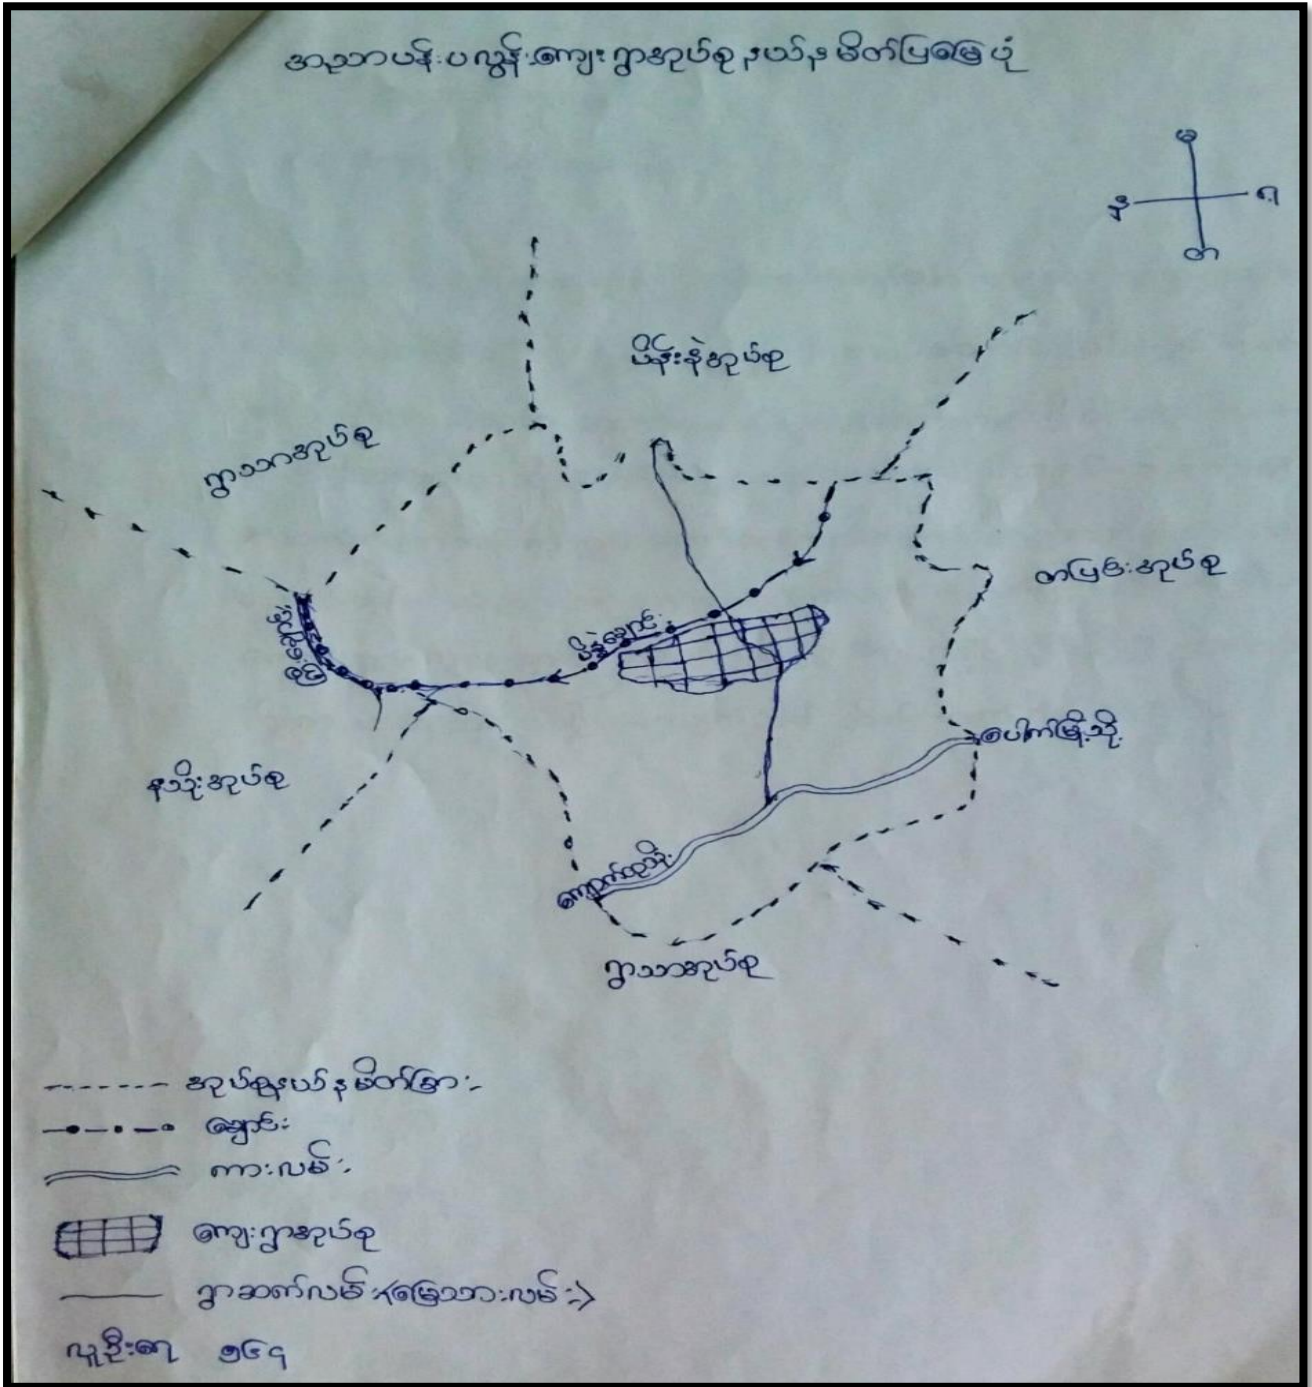 အညာပန်းပလွန်းကျေးရွာအုပ်စု နယ်နမိတ်ပြမြေပုံ
မ
န
ရှ
တ
ပိန်းနဲအုပ်စု
ရွာသာအုပ်စု
တပြင်းအုပ်စု
ပေါက်မြို့သို့
နသိုးအုပ်စု
ကျောက်ထုသို့
ရွာသာအုပ်စု
အုပ်စုနယ်နမိတ်များ
ချောင်း
ကားလမ်း
ကျေးရွာအုပ်စု
ရွာဆက်လမ်း(မြေသားလမ်း)
လူဦးရေ ၅၆၄